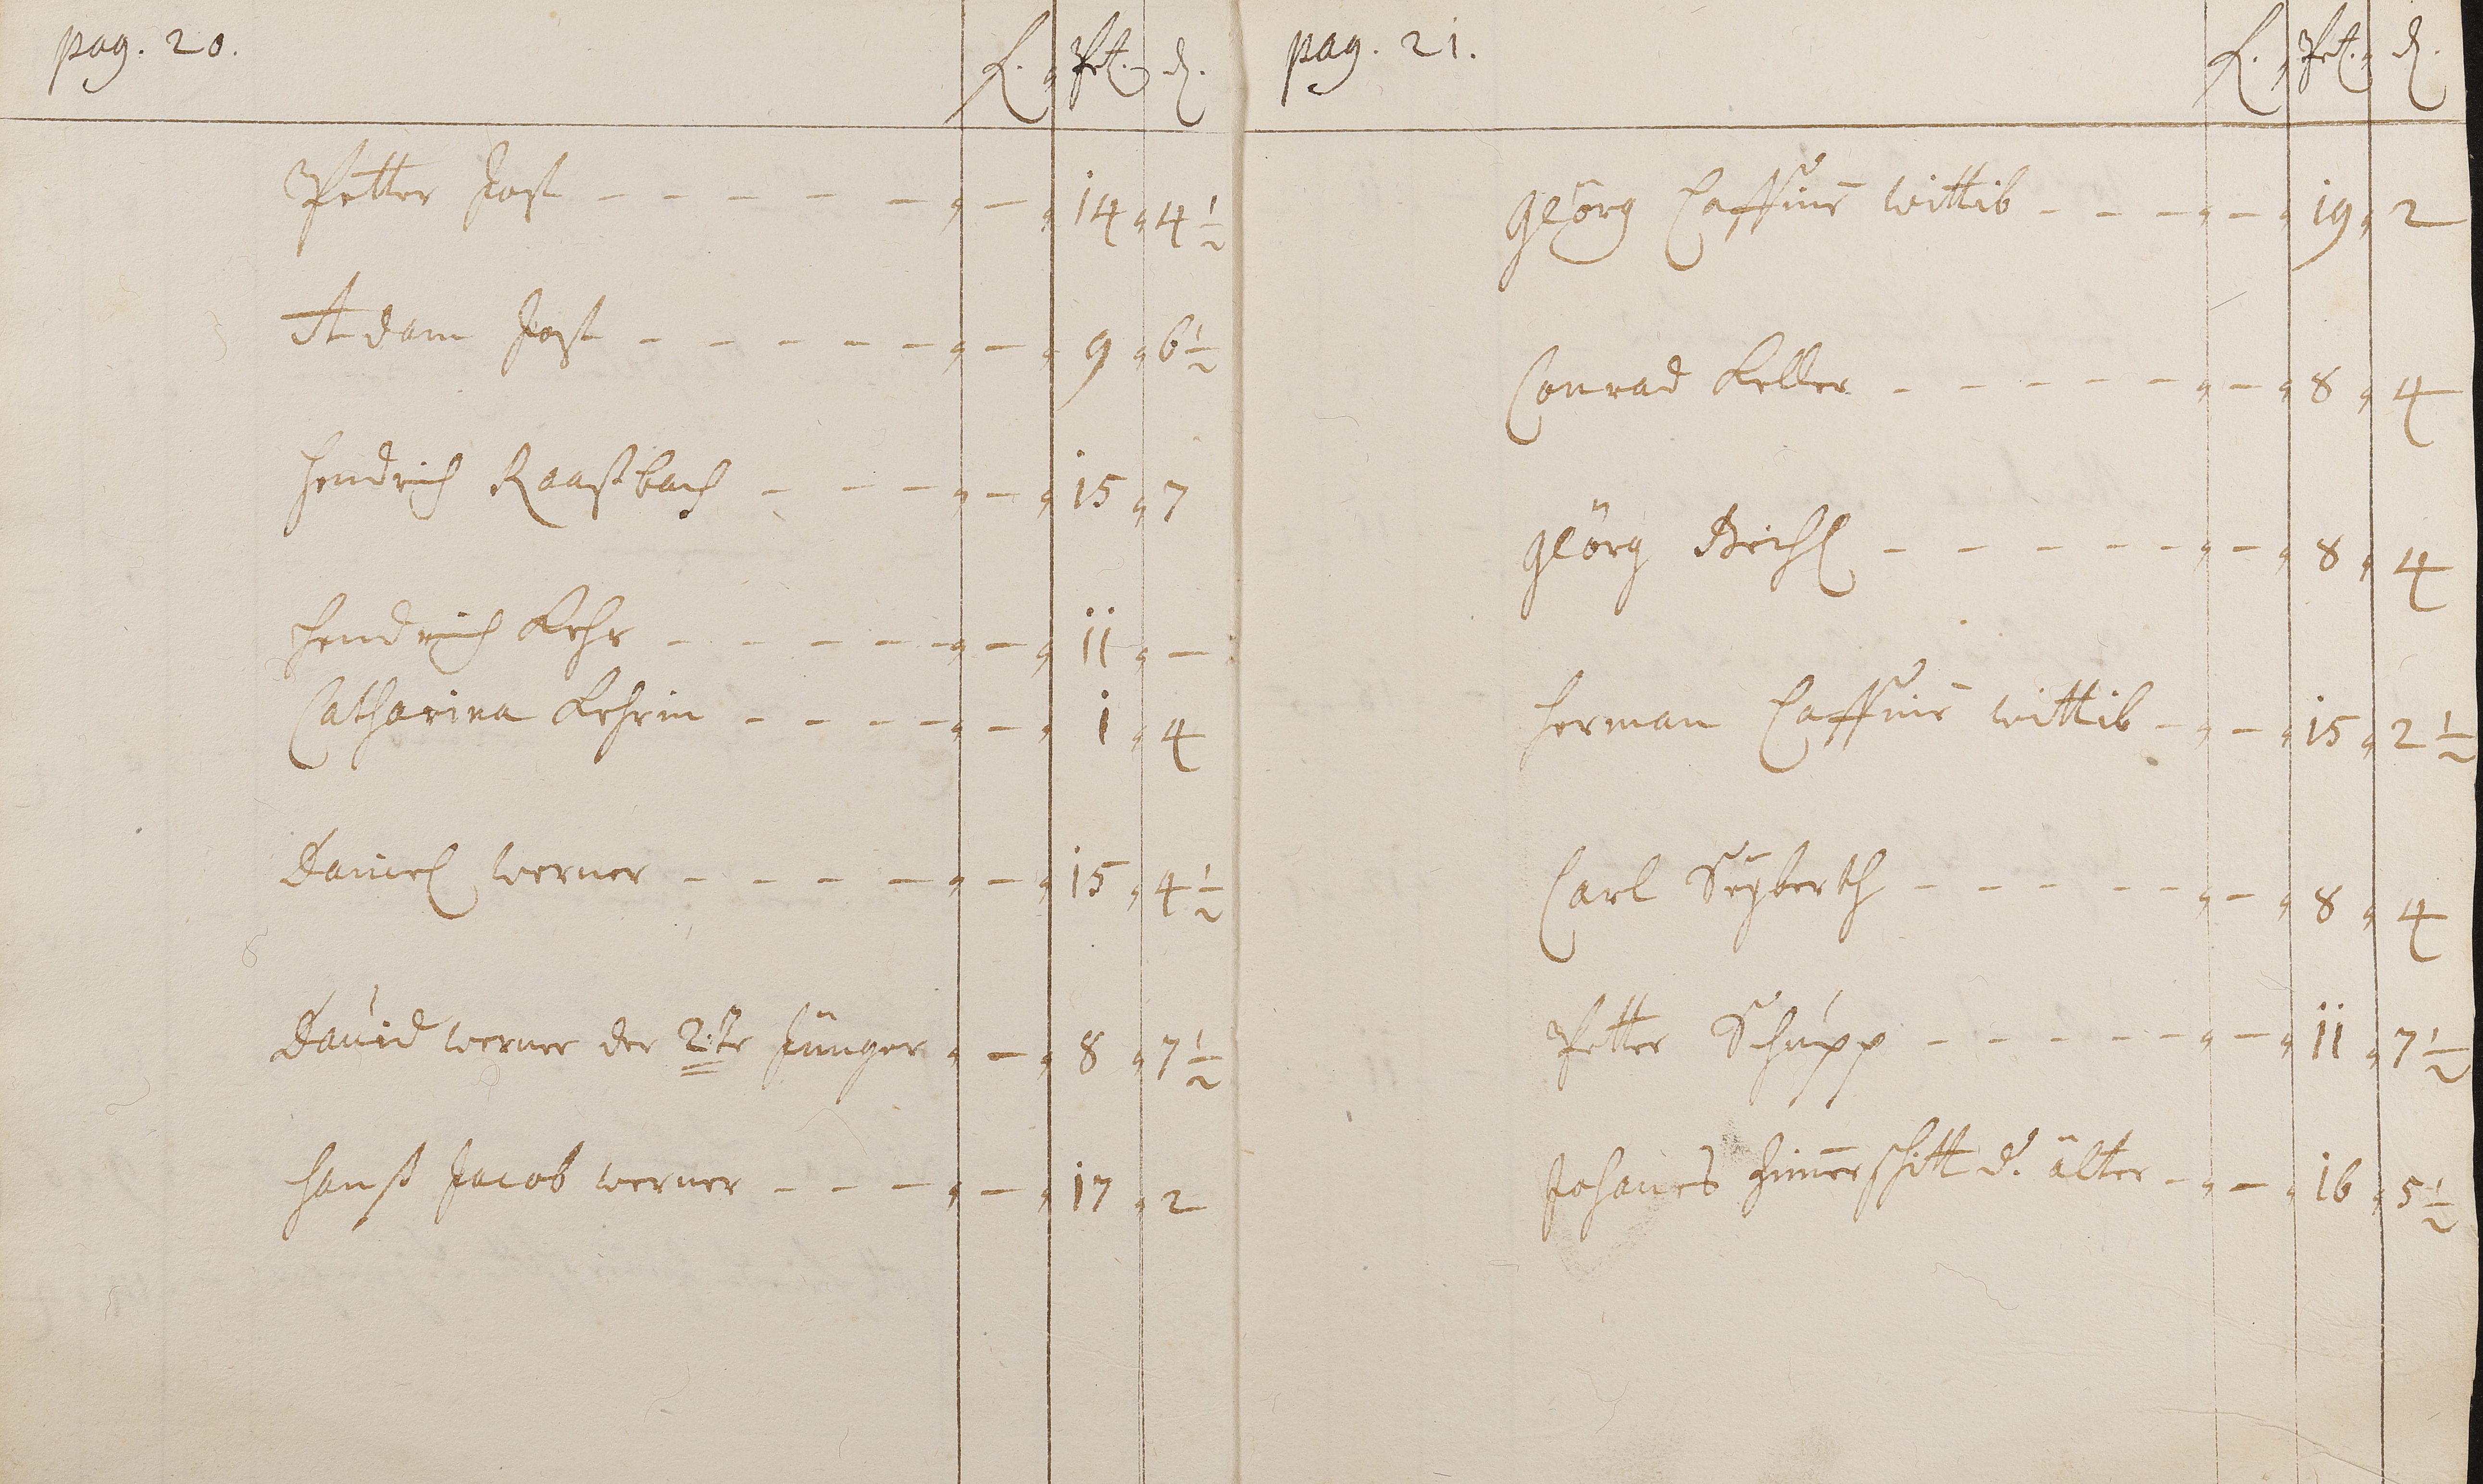 pag. 20.
R. Pet. d.
Petter Jost - - - - - - - 14 4 1/2
Adam Jost - - - - - - - 9 6 1/2
Hendrich Raaßbach - - - - - 15 7
Hendrich Kehr - - - - - - 11 -
Catharina Kehrin - - - - - 1 4
Daniel Werner - - - - - 15 4 1/2
David Werner der 2:te Jünger - 8 7 1/2
Hanß Jacob Werner - - - - 17 2
pag. 21.
R. Pet. d.
Georg wittib - - - - 19 2
Conrad Keller - - - - - - 8 4
Georg - - - - - - 8 4
Herman wittib - - 15 2 1/2
Carl Seyberth - - - - - - 8 4
Petter Schupp - - - - - - 11 7 1/2
Johanes Zimerschitt d. älter - - 16 5 1/2